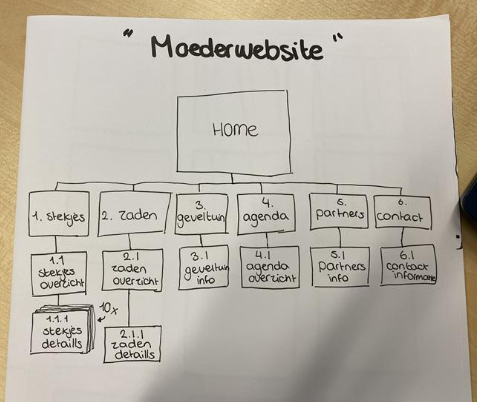 "Moederwebsite"
HOME
1. Stekjes
2. Zaden
3.
geveltuin
4.
agenda
5.
partners
6.
contact
1.1
stekjes
overzicht
2.1
zaden
overzicht
3.1
geveltuin
info
4.1
agenda
overzicht
5.1
partners
info
6.1
contact
10x
1.1.1
stekjes
detaills
2.1.1
zaden
detaills